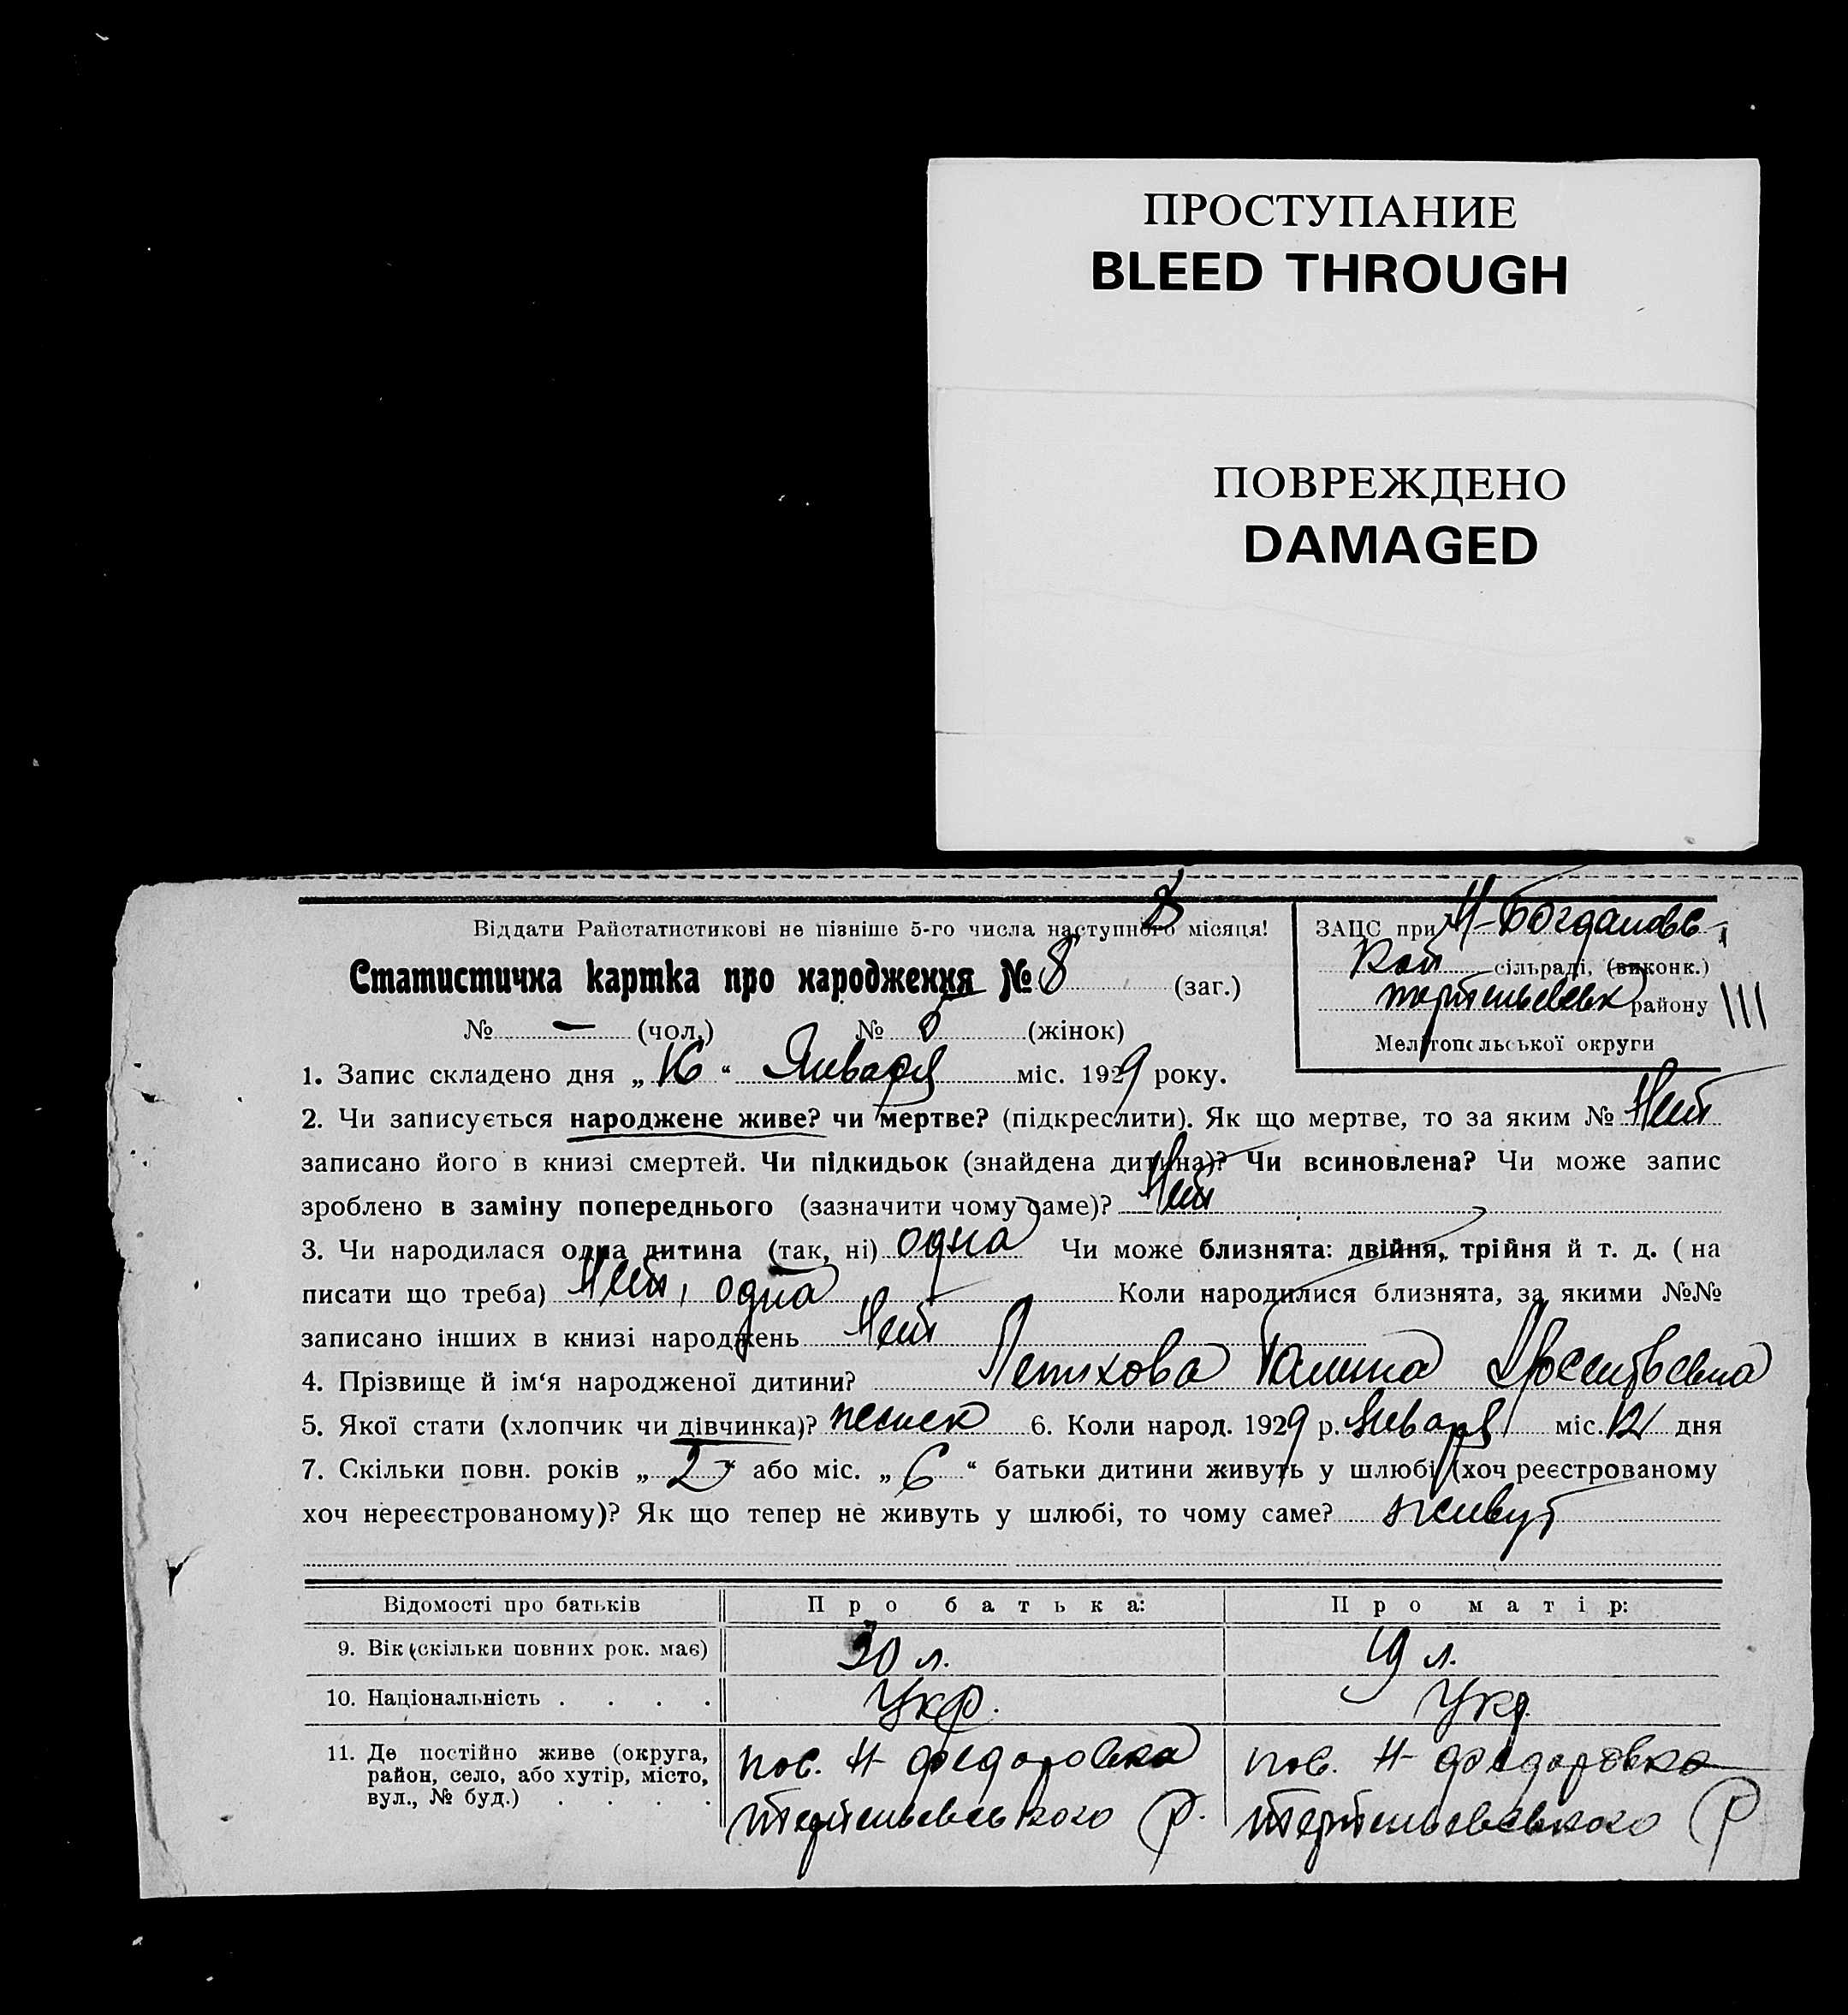 ПРОСТУПАНИЕ
BLEED THROUGH
ПОВРЕЖДЕНО
DAMAGED
Віддати Райстатистикові не пізніше 5-го числа наступного місяця!
ЗАЦС при Н-Богдановс
кой сільраді, (виконк.)
району
Мелітопсльської округи
Статистична картка про народження № 8 (заг.)
№ — (чол.) № 5 (жінок)
1. Запис складено дня „16“ Января міс. 1929 року.
2. Чи записується народжене живе? чи мертве? (підкреслити). Як що мертве, то за яким № Нет
записано його в книзі смертей. Чи підкидьок (знайдена дитина)? Чи всиновлена? Чи може запис
зроблено в заміну попереднього (зазначити чому саме)? Нет
3. Чи народилася одна дитина (так, ні) одна Чи може близнята: двійня, трійня й т. д. (на
писати що треба) Нет, одна Коли народилися близнята, за якими №№
записано інших в книзі народжень Нет
4. Прізвище й ім‘я народженої дитини? Галина
5. Якої стати (хлопчик чи дівчинка)? женск 6. Коли народ. 1929 р. Января міс. 12 дня
7. Скільки повн. років „2“ або міс. „6“ батьки дитини живуть у шлюбі (хоч реєстрованому
хоч нереєстрованому)? Як що тепер не живуть у шлюбі, то чому саме? живут
Відомості про батьків Про батька: Про матір:
9. Вік (скільки повних рок. має) 30 л. 19 л.
10. Національність . . . . Укр. Укр.
11. Де постійно живе (округа, район, село, або хутір, місто, вул., № буд.) . . . .
пос. Н-Федоровка
Р.
пос. Н-Федоровка
Р